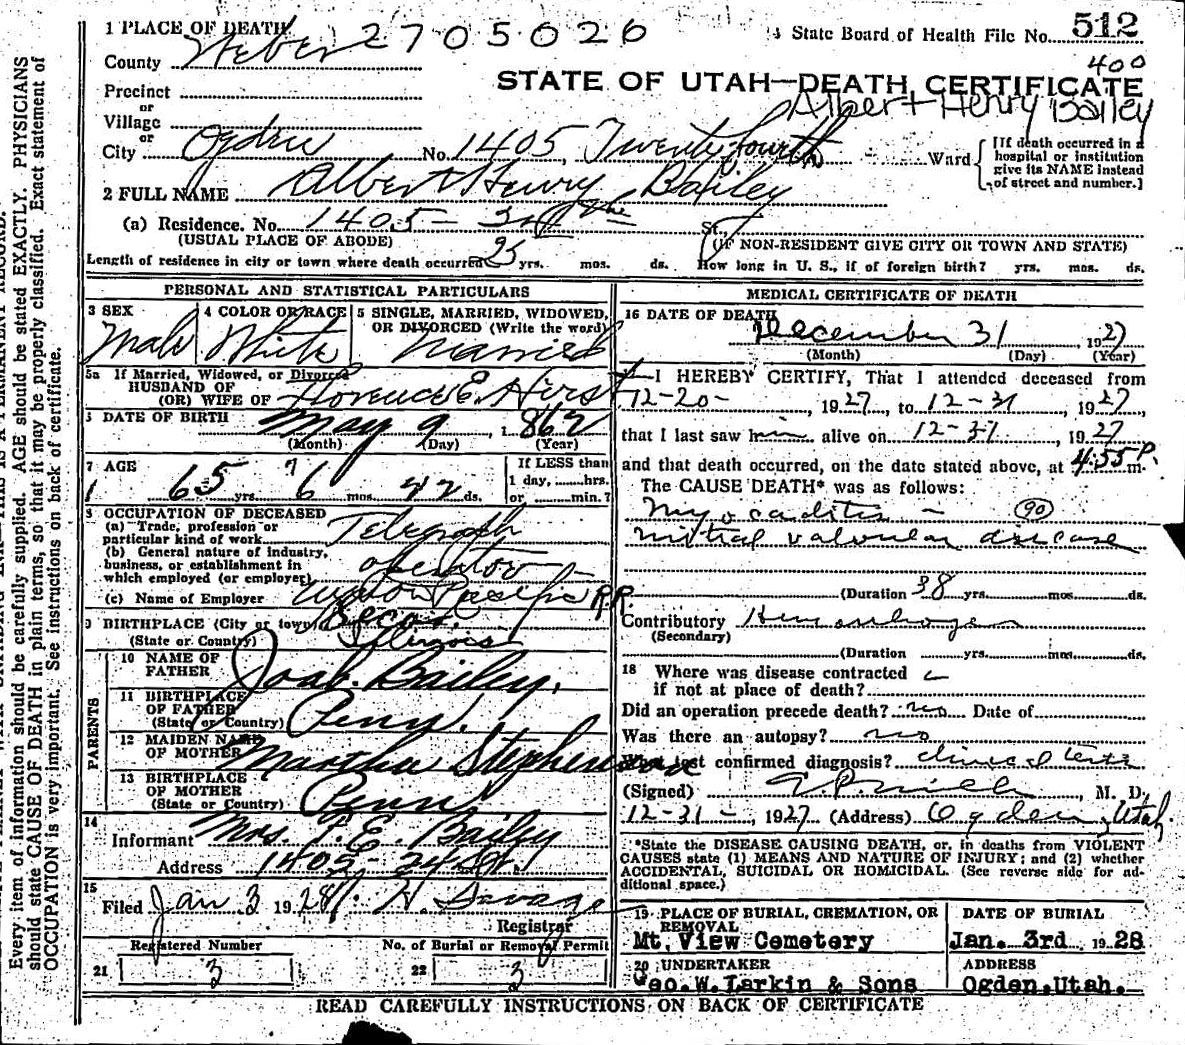 1 PLACE OF DEATH 2705026 State Board of Health File No. 512
County Weber 400
STATE OF UTAH—DEATH CERTIFICATE
Precinct
or Albert Henry Bailey
Village
or
City Ogden No. 1405, Twenty fourth Ward [If death occurred in a hospital or institution give its NAME instead of street and number.]
2 FULL NAME Albert Henry Bailey
(a) Residence. No. 1405 - St.,
(USUAL PLACE OF ABODE) (IF NON-RESIDENT GIVE CITY OR TOWN AND STATE)
Length of residence in city or town where death occurred yrs. mos. ds. How long in U. S., if of foreign birth? yrs. mos. ds.
PERSONAL AND STATISTICAL PARTICULARS
3 SEX 4 COLOR OR RACE 5 SINGLE, MARRIED, WIDOWED, OR DIVORCED (Write the word)
Male White Married
5a If Married, Widowed, or Divorced
HUSBAND OF
(OR) WIFE OF Florence E. Hirst
DATE OF BIRTH May 9, 1862
(Month) (Day) (Year)
7 AGE If LESS than
65 yrs. mos. 22 ds. 1 day, hrs.
or min.?
8 OCCUPATION OF DECEASED
(a) Trade, profession or
particular kind of work Telegraph
(b) General nature of industry,
business, or establishment in
which employed (or employer) operator
(c) Name of Employer Union Pacific R.R.
9 BIRTHPLACE (City or town)
(State or Country) Illinois
PARENTS
10 NAME OF
FATHER Bailey.
11 BIRTHPLACE
OF FATHER
(State or Country) Penn.
12 MAIDEN NAME
OF MOTHER Martha Stephenson
13 BIRTHPLACE
OF MOTHER
(State or Country) Penn
14
Informant Mrs. F. E. Bailey
Address 1405 - 24 St.
15
Filed Jan 3 1928 H. Savage
Registrar
Registered Number No. of Burial or Removal Permit
21 3 22 3
MEDICAL CERTIFICATE OF DEATH
16 DATE OF DEATH
December 31, 1927
(Month) (Day) (Year)
I HEREBY CERTIFY, That I attended deceased from
12-20-, 1927, to 12-31, 1927,
that I last saw him alive on 12-31, 1927
and that death occurred, on the date stated above, at 4:55 P. m.
The CAUSE DEATH* was as follows:
Myocarditis - 90
mitral valvular disease
(Duration 38 yrs. mos. ds.
Contributory
(Secondary)
(Duration yrs. mos. ds.
18 Where was disease contracted
if not at place of death?
Did an operation precede death? no Date of
Was there an autopsy? no
What test confirmed diagnosis? clinical tests
(Signed) , M. D.
12-31-, 1927 (Address) Ogden, Utah.
*State the DISEASE CAUSING DEATH, or, in deaths from VIOLENT
CAUSES state (1) MEANS AND NATURE OF INJURY; and (2) whether
ACCIDENTAL, SUICIDAL OR HOMICIDAL. (See reverse side for ad-
ditional space.)
19 PLACE OF BURIAL, CREMATION, OR DATE OF BURIAL
REMOVAL
Mt. View Cemetery Jan. 3rd 1928
20 UNDERTAKER ADDRESS
Geo. W. Larkin & Sons Ogden, Utah.
READ CAREFULLY INSTRUCTIONS ON BACK OF CERTIFICATE
Every item of information should be carefully supplied. AGE should be stated EXACTLY. PHYSICIANS
should state CAUSE OF DEATH in plain terms, so that it may be properly classified. Exact statement of
OCCUPATION is very important. See instructions on back of certificate.